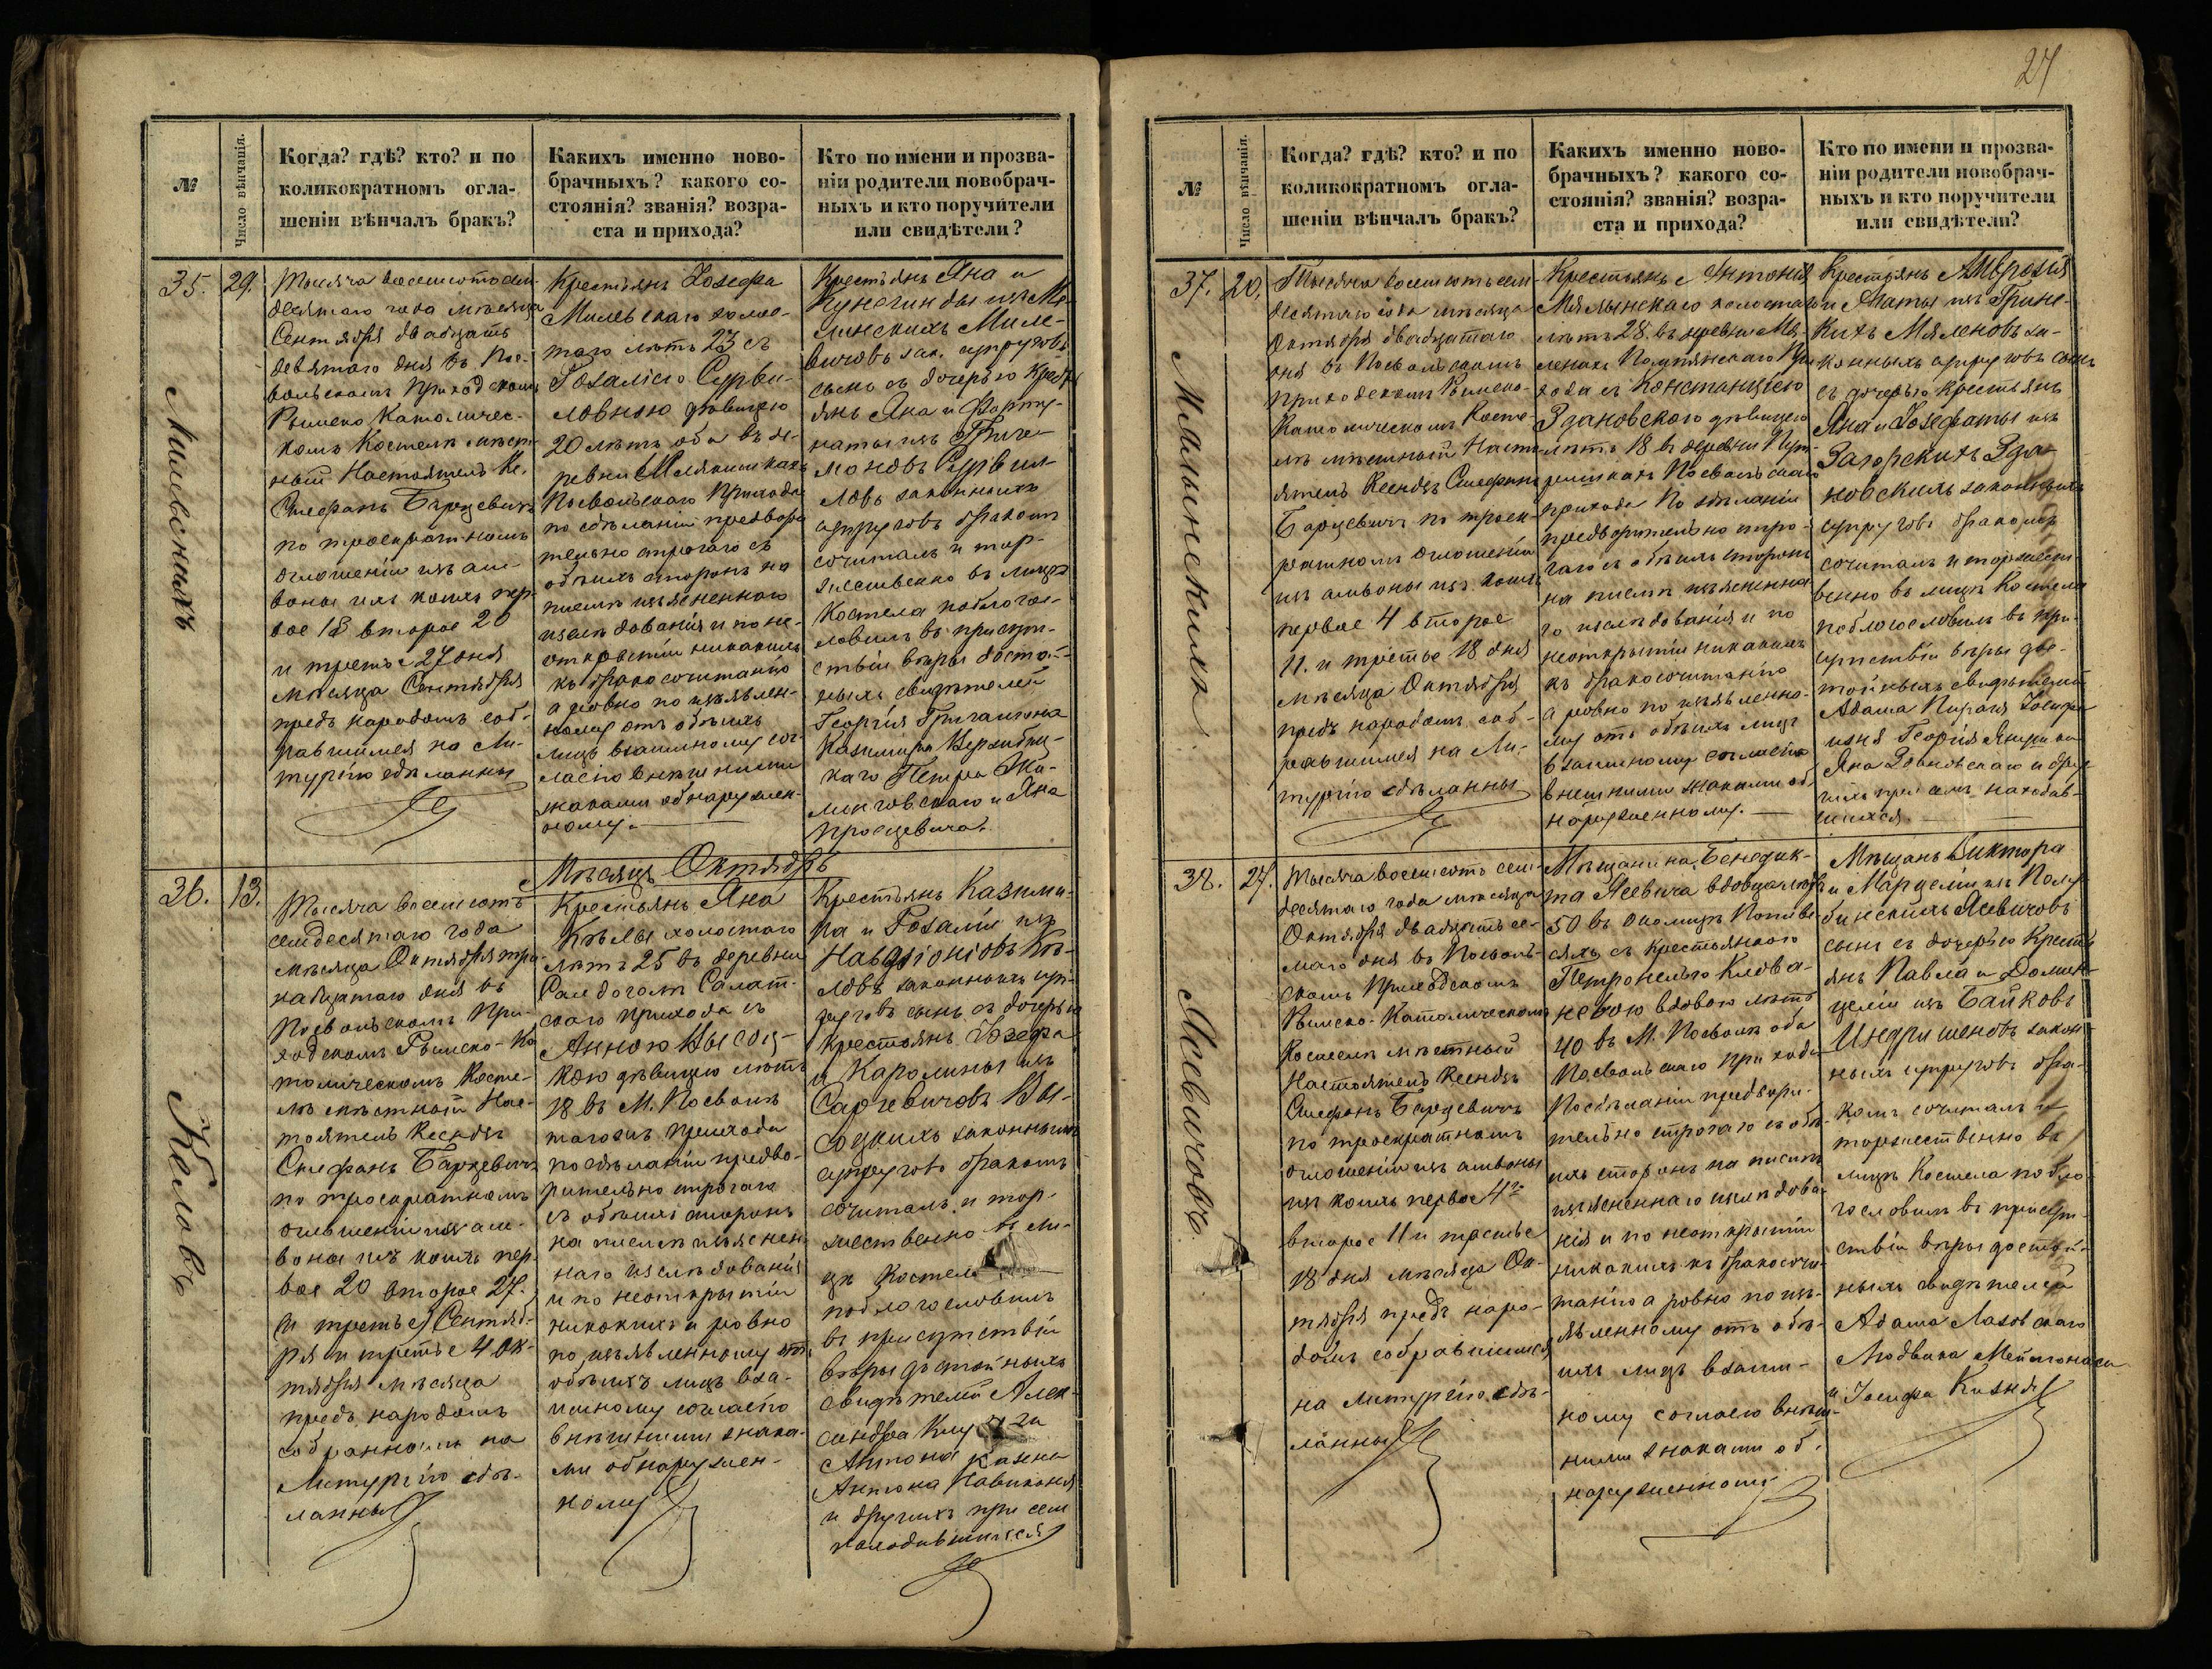 №
Число вѣнчанія.
Когда? гдѣ? кто? и по
коликократномъ огла-
шеніи вѣнчалъ бракъ?
Какихъ именно ново-
брачныхъ? какого со-
стоянія? званія? возра-
ста и прихода?
Кто по имени и прозва-
ніи родители новобрач-
ныхъ и кто поручители
или свидѣтели?
35.
Милевскихъ
29.
Тысяча восемьсотъ сем-
десятаго года мѣсяца
Сентября двадцать
девятаго дня въ Пос-
вольскомъ Приходскомъ
Римско Католичес-
комъ Костелѣ мѣст-
ный Настоятель Кс.
Стефанъ Барцевичъ
по троекратномъ
оглашеніи изъ ам-
воны изъ коихъ пер-
вое 18 второе 20
и третье 27 дня
мѣсяца Сентября
предъ народомъ соб-
равшимся на Ли-
тургію сдѣланны
Крестьянъ Іозефа
Милевскаго холос-
таго лѣтъ 23 съ
Розаліею Сурви-
ловною дѣвицею
20 лѣтъ оба въ де-
ревни
Посвольскаго Прихода
по сдѣланіи предвари
тельно строгаго съ
обѣихъ сторонъ на
письмѣ изъясненнаго
изслѣдованія и по не-
открытіи никакихъ
къ бракосочитанію
а ровно по изъявлен-
ному отъ обѣихъ
лицъ взаимному сог-
ласію внѣшними
знаками обнаружен-
ному.
Крестьянъ Яна и
Кунегинды изъ
Миле-
вичовъ зак. супруговъ
сына съ дочерью Кресть
янъ Яна и Форту-
наты изъ Григе-
лоновъ Сурвил-
ловъ законныхъ
супруговъ бракомъ
сочиталъ и тор-
жественно въ лицѣ
Костела поблагос-
ловилъ въ присут-
ствіи вѣры достой-
ныхъ свидѣтелей
Георгія
Казимира
Петра
и Яна
Процевича.
Мѣсяцъ Октябрь
36.
Кѣловъ
13.
Тысяча восемьсотъ
семдесятаго года
мѣсяца Октября три-
надцатаго дня въ
Посвольскомъ При-
ходскомъ Римско-Ка
толическомъ Косте-
лѣ мѣстный Нас-
тоятель Ксендзъ
Стефанъ Барцевичъ
по троекратномъ
оглашеніи изъ ам-
воны изъ коихъ пер-
вое 20 второе 27.
(и третье) Сентяб-
ря и третье 4 Ок-
тября мѣсяца
предъ народомъ
собраннымъ на
Литургію сдѣ-
ланны
Крестьянъ Яна
Кѣлы холостаго
лѣтъ 25 въ деревни
Салат-
скаго прихода съ
Анною Высоц-
кою дѣвицею лѣтъ
18 въ М. Посволѣ
тагожъ прихода
по сдѣланіи предва-
рительно строгаго
съ обѣихъ сторонъ
на письмѣ изъяснен
наго изслѣдованія
и по неоткрытіи
никакихъ а ровно
по изъявленному отъ
обѣихъ лицъ вза-
имному согласію
внѣшними знака-
ми обнаружен-
ному
Крестьянъ Казими-
ра и Розаліи изъ
Кѣ-
ловъ законныхъ суп-
руговъ сынъ съ дочерью
крестьянъ Іозефа
и Каролины изъ
Сарцевичовъ Вы-
соцкихъ законныхъ
супруговъ бракомъ
сочиталъ и тор-
жественно въ ли-
цѣ Костела
поблагословилъ
въ присутствіи
вѣры достойныхъ
свидѣтелей Алек-
сандра
Антона
Антона
и другихъ при сем
находившихся
27
№
Число вѣнчанія.
Когда? гдѣ? кто? и по
коликократномъ огла-
шеніи вѣнчалъ бракъ?
Какихъ именно ново-
брачныхъ? какого со-
стоянія? званія? возра-
ста и прихода?
Кто по имени и прозва-
ніи родители новобрач-
ныхъ и кто поручители
или свидѣтели?
37.
Мялынскихъ
20.
Тысяча восемьсотъ сем
десятаго года мѣсяца
Октября двадцатаго
дня въ Посвольскомъ
приходскомъ Римско-
Католическомъ Косте-
лѣ мѣстный Насто-
ятель Ксендзъ Стефанъ
Барцевичъ по троек-
ратномъ оглашеніи
изъ амвоны изъ коихъ
первое 4 второе
11. и третье 18 дня
мѣсяца Октября
предъ народомъ соб-
равшимся на Ли-
тургію сдѣланны
Крестьянъ Антонія
Мялынскаго холостаго
лѣтъ 28. въ деревни
При
хода съ Констанціею
Здановскою дѣвицею
лѣтъ 18 въ деревни
Посвольскаго
прихода по сдѣланіи
предварительно стро-
гаго съ обѣихъ сторонъ
на письмѣ изъясненна
го изслѣдованія и по
неоткрытіи никакихъ
къ бракосочитанію
а ровно по изъявленно-
му отъ обѣихъ лицъ
взаимному согласію
внешними знаками об-
наруженному.
Крестьянъ Амброзія
и Агаты изъ Грине-
кихъ Мяленовъ за-
конныхъ супруговъ сынъ
съ дочерью крестьянъ
Яна и Іозефаты изъ
Загорскихъ Зда-
новскихъ законныхъ
супруговъ бракомъ
сочиталъ и торжест-
венно въ лицѣ Костела
поблагословилъ въ при-
сутствіи вѣры дос-
тойныхъ свидѣтелей
Адама
Георгія
Яна Здановскаго и дру
гихъ при семъ находив-
шихся.
38.
Ясевичовъ
27.
Тысяча восемьсотъ сем-
десятаго года мѣсяца
Октября двадцать се-
маго дня въ Посволь-
скомъ Приходскомъ
Римско-Католическомъ
Костелѣ мѣстный
Настоятель Ксендзъ
Стефанъ Барцевичъ
по троекратномъ
оглашеніи изъ амвоны
изъ коихъ первое 4го
второе 11 и третье
18 дня мѣсяца Ок-
тября предъ наро-
домъ собравшимся
на Литургію сдѣ-
ланны
Мѣщанина Бенедик-
та Ясевича вдовца лѣтъ
50 въ околицѣ
съ крестьянкою
Петронелею
вдовою лѣтъ
40 въ М. Посволѣ оба
Посвольскаго прихода
По сдѣланіи предвари-
тельно строгаго съ обѣ-
ихъ сторонъ на письмѣ
изъясненнаго изслѣдова-
нія и по неоткрытіи
никакихъ къ бракосочи-
танію а ровно по изъ-
явленному отъ обѣ-
ихъ лицъ взаим-
ному согласію внѣш-
ними знаками об-
наруженному
Мѣщанъ Виктора
и Марцеліи изъ
Ясевичовъ
сына съ дочерью Кресть
янъ Павла и
изъ Байковъ
закон
ныхъ супруговъ бра-
комъ сочиталъ и
торжественно въ
лицѣ Костела побла-
гословилъ въ присут-
ствіи вѣры достой-
ныхъ свидѣтелей
Адама Лазовскаго
Людвика
и Іосифа